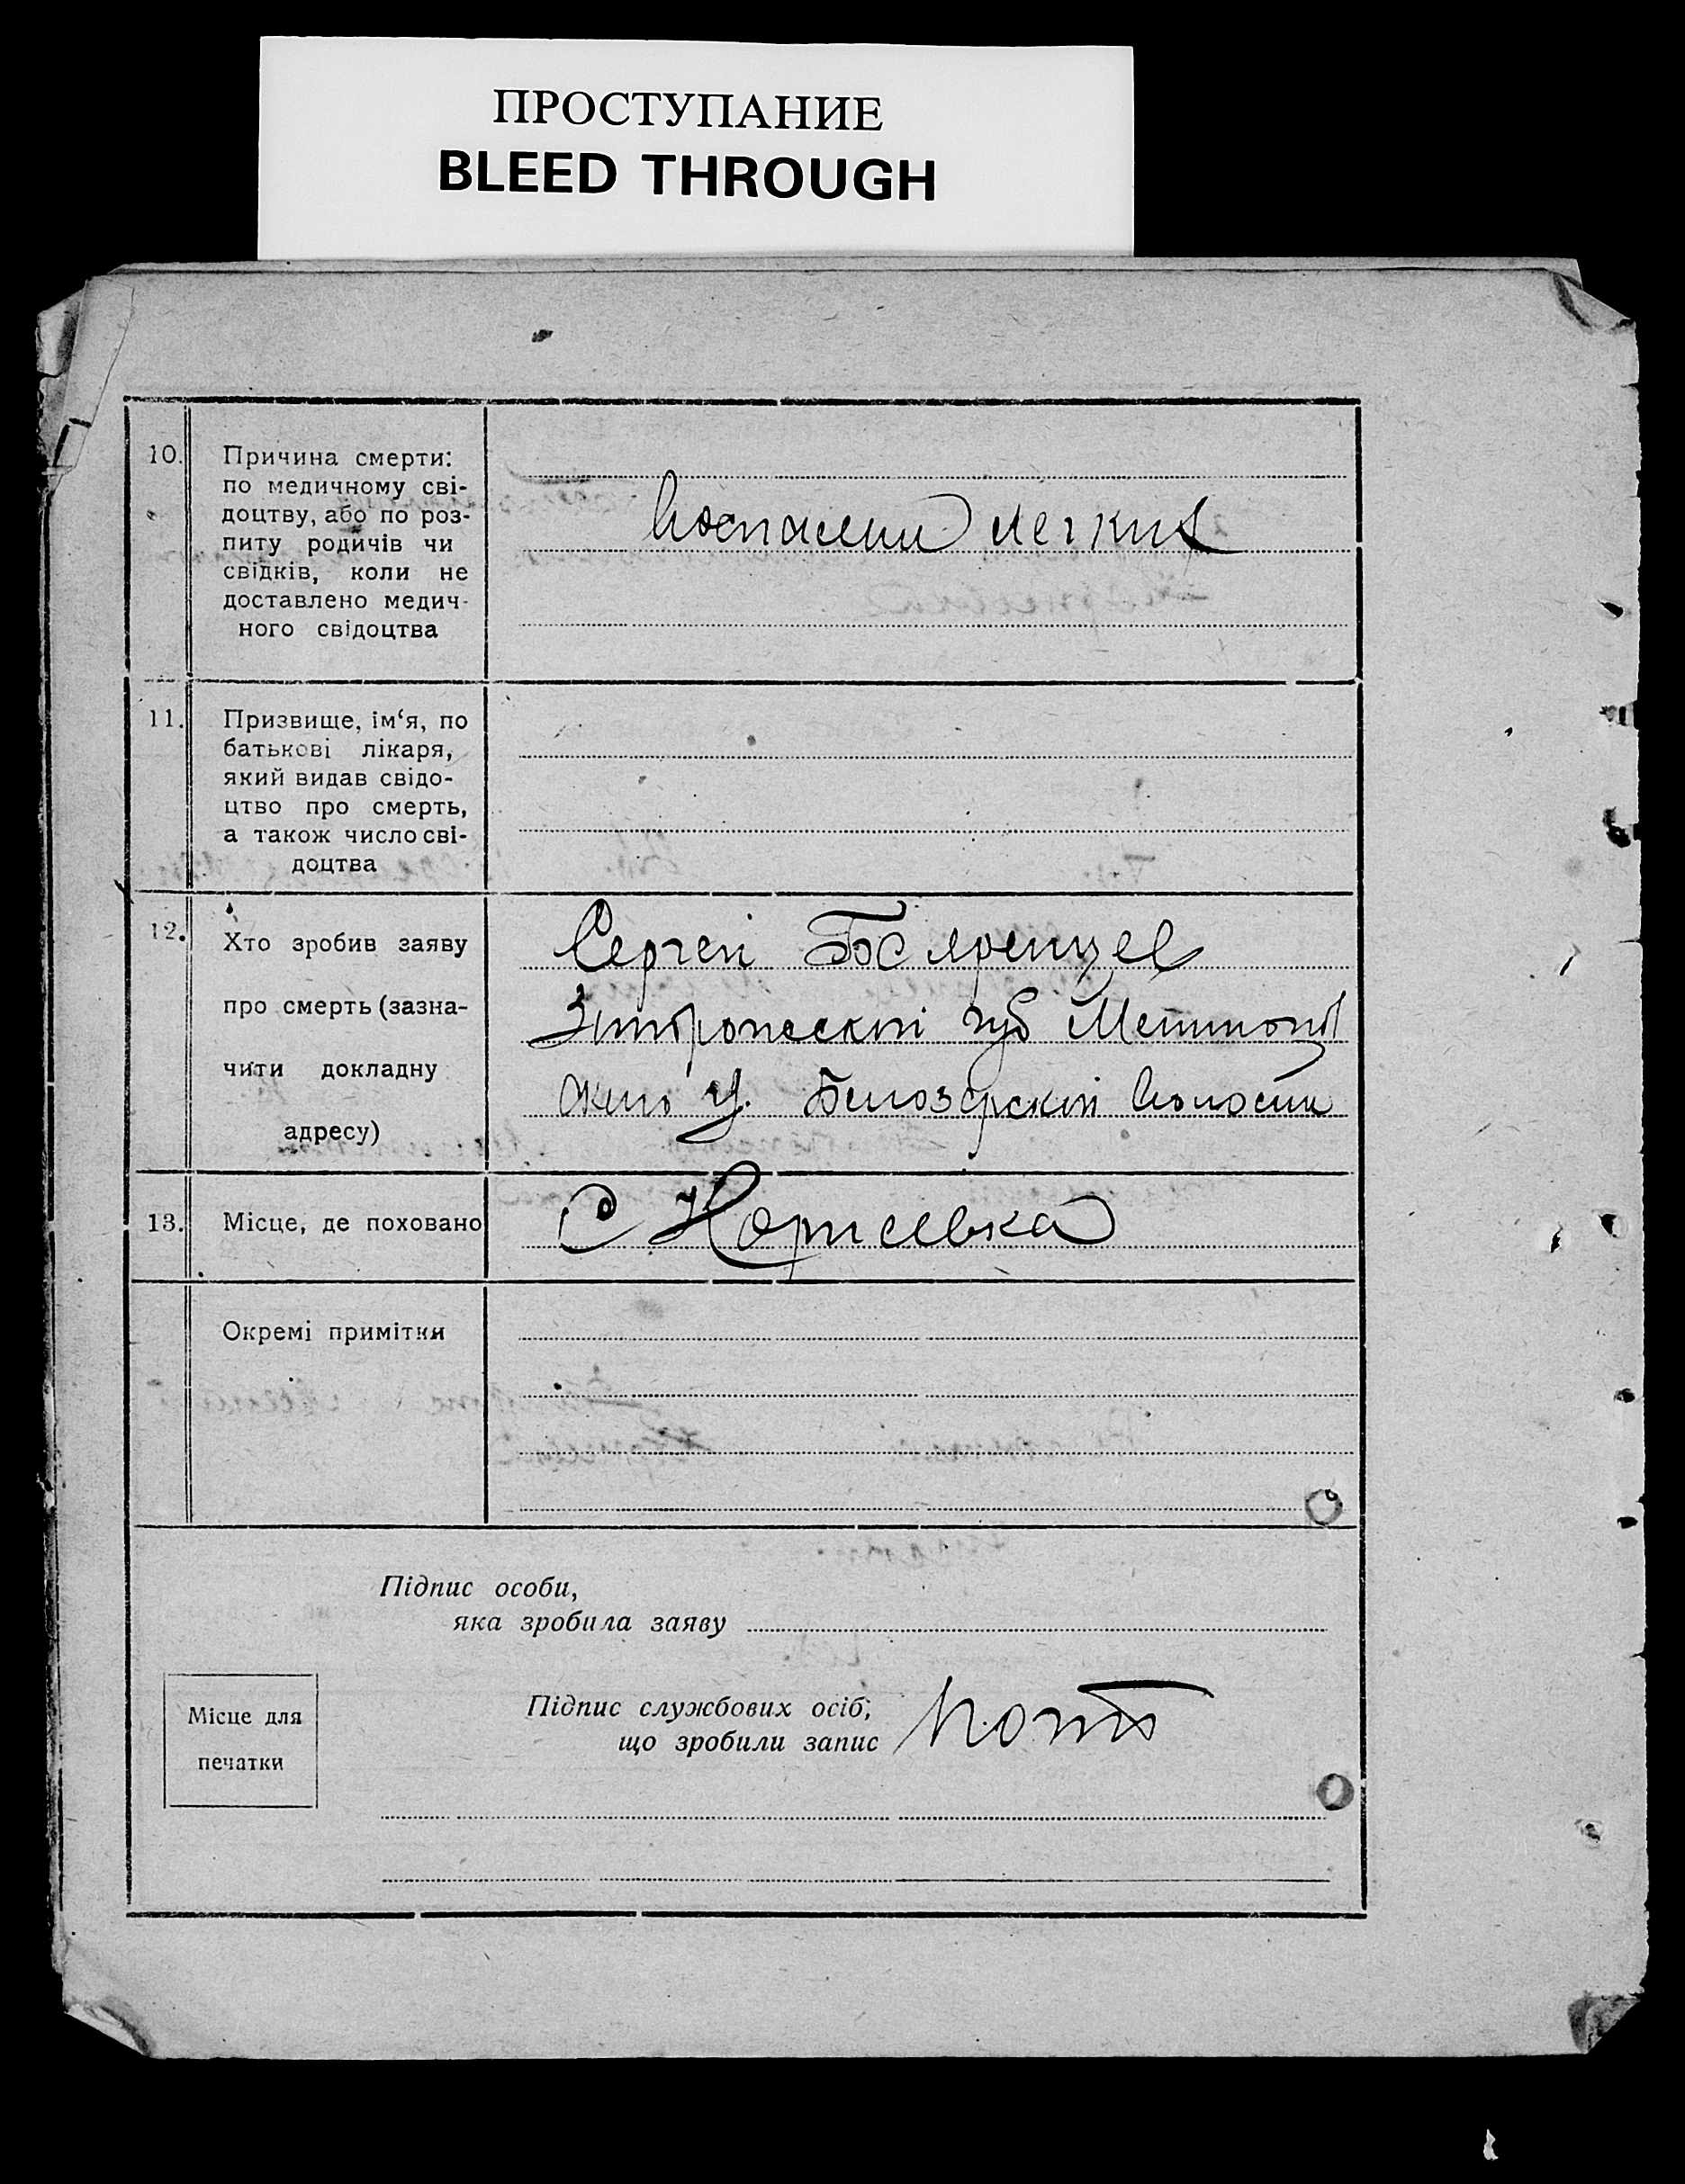 ПРОСТУПАНИЕ
BLEED THROUGH
10.
Причина смерти:
по медичному сві-
доцтву, або по роз-
питу родичів чи
свідків, коли не
доставлено медич-
ного свідоцтва
легких
11.
Призвище, ім‘я, по
батькові лікаря,
який видав свідо-
цтво про смерть,
а також число сві-
доцтва
12.
Хто зробив заяву
про смерть (зазна-
чити докладну
адресу)
Сергей
губ
У. Белозерской Волости
13.
Місце, де поховано
С
Окремі примітки
Підпис особи,
яка зробила заяву
Підпис службових осіб;
що зробили запис
Місце для
печатки